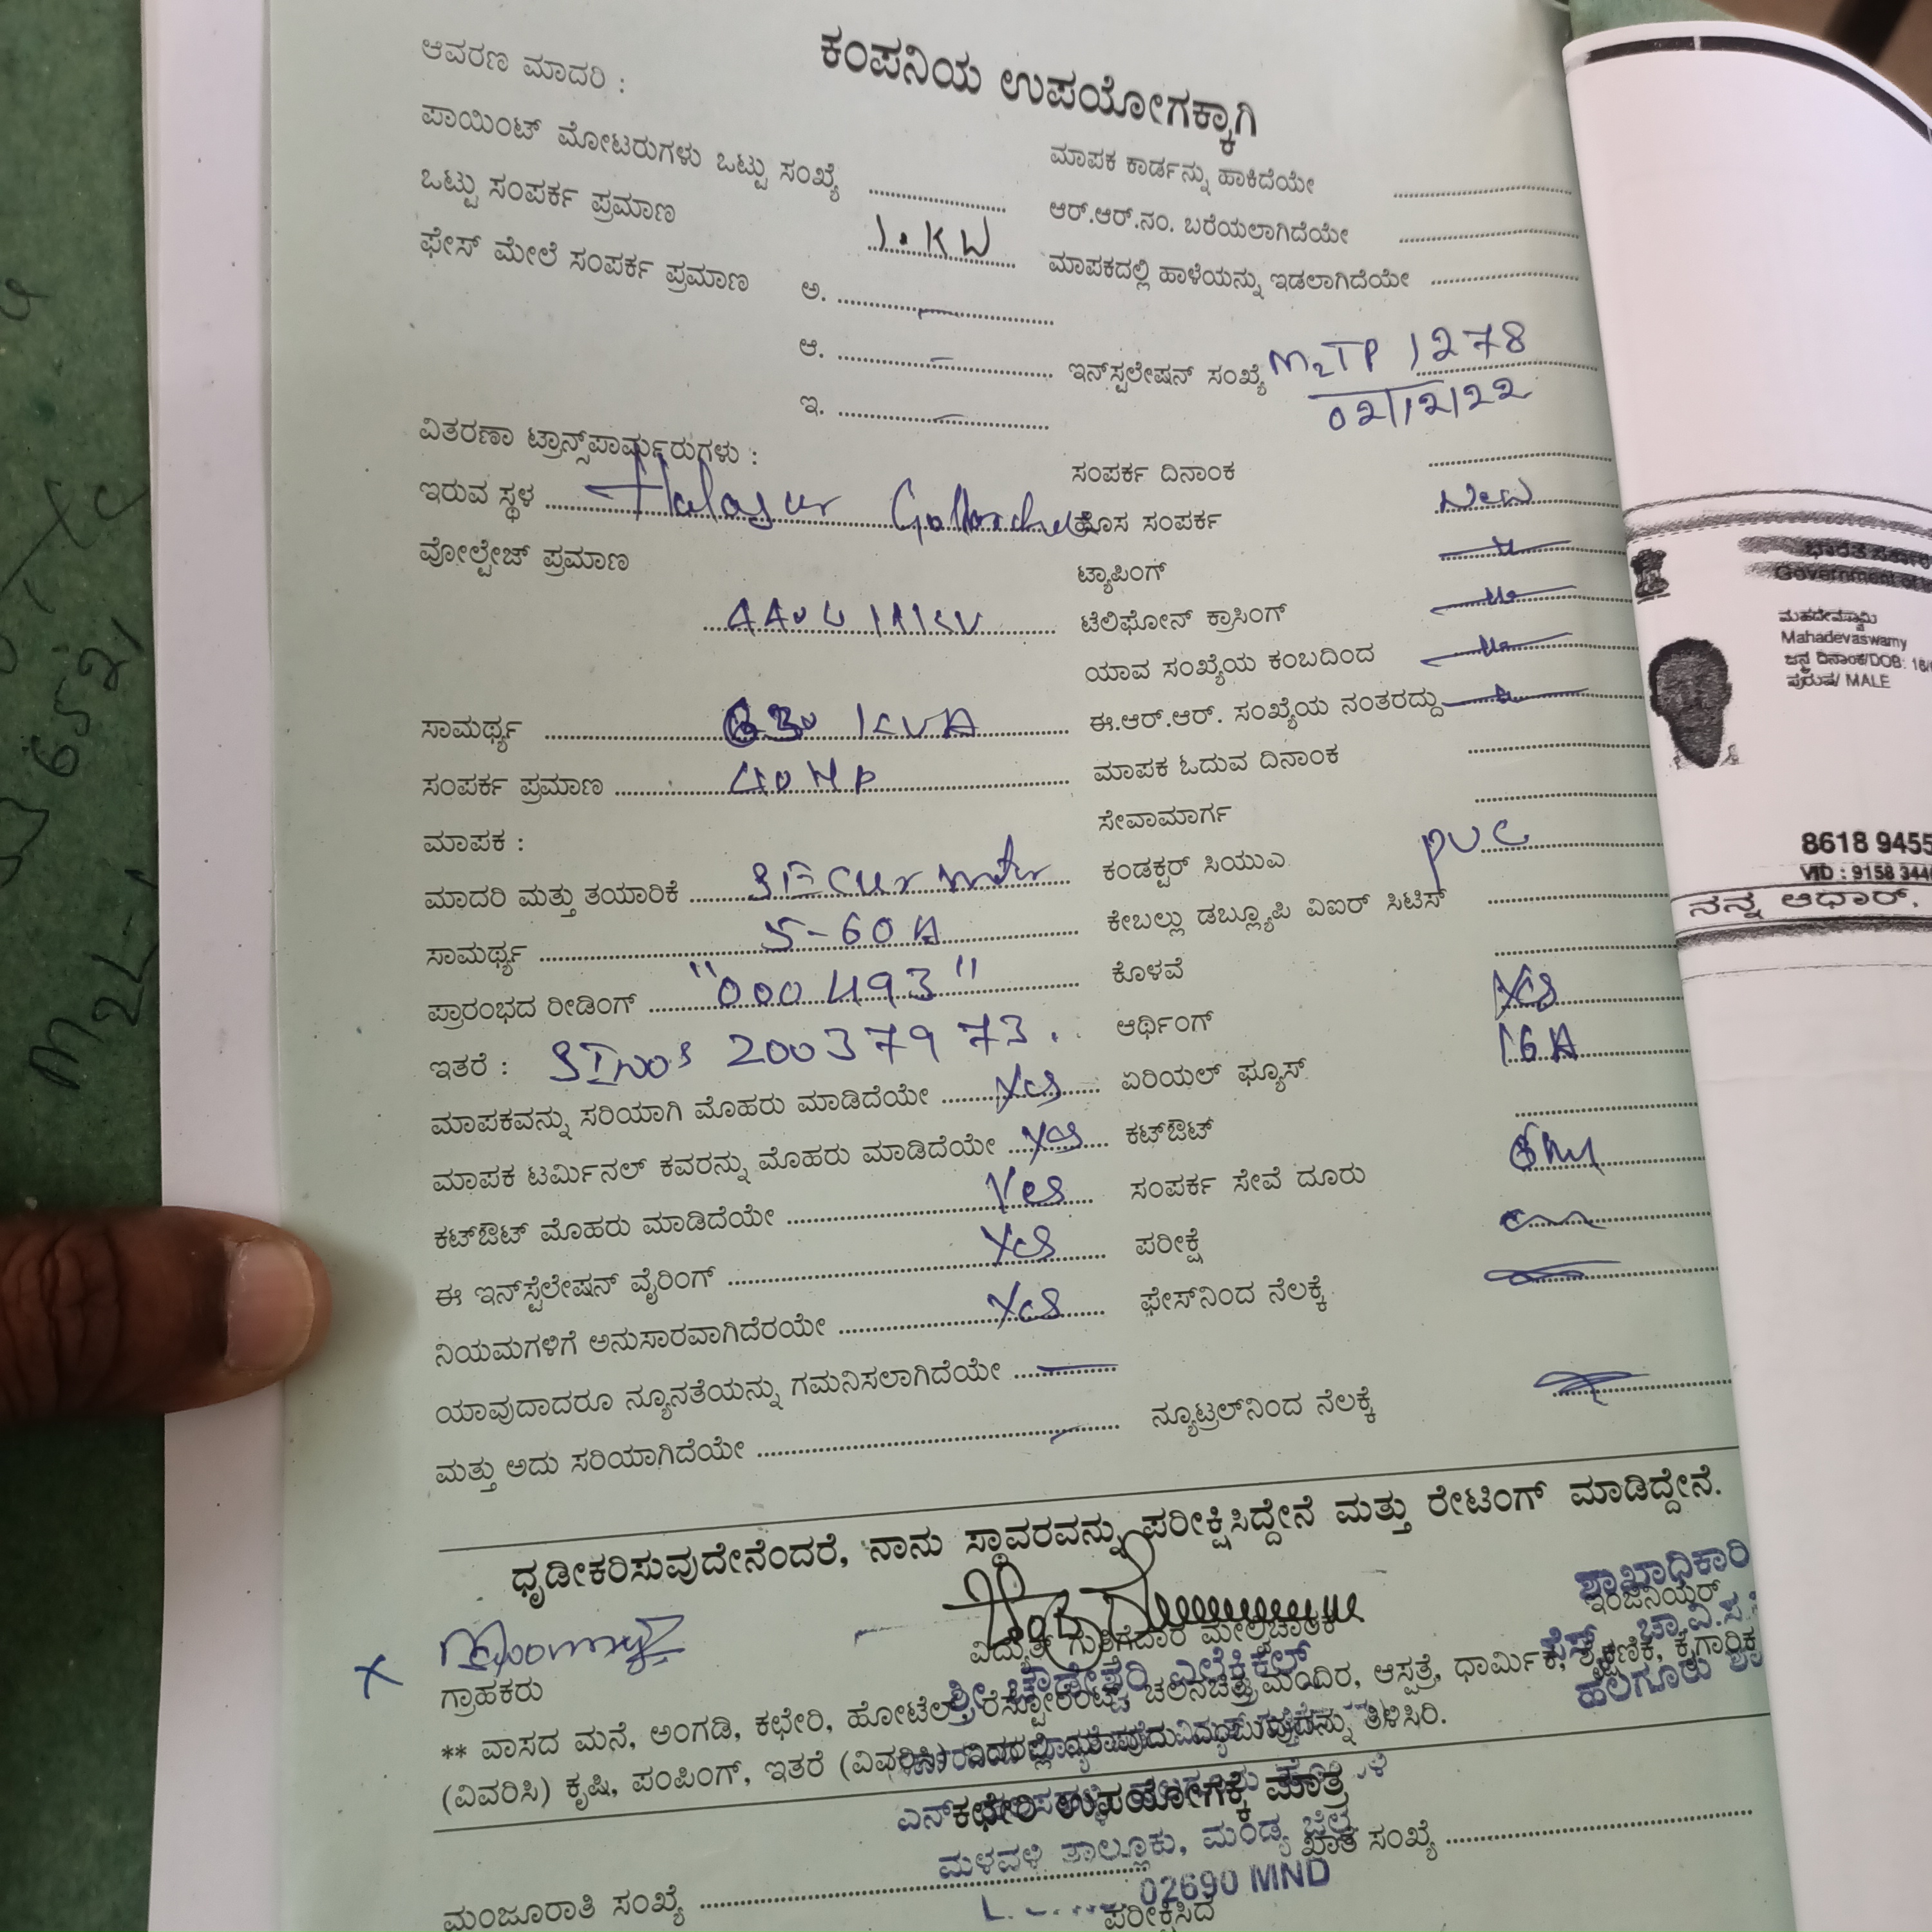 ಕಂಪನಿಯ ಉಪಯೋಗಕ್ಕಾಗಿ
ಆವರಣ ಮಾದರಿ :
ಪಾಯಿಂಟ್ ಮೋಟರುಗಳು ಒಟ್ಟು ಸಂಖ್ಯೆ
ಒಟ್ಟು ಸಂಪರ್ಕ ಪ್ರಮಾಣ 1.KW
ಫೇಸ್ ಮೇಲೆ ಸಂಪರ್ಕ ಪ್ರಮಾಣ ಅ.
ಆ.
ಇ.
ವಿತರಣಾ ಟ್ರಾನ್ಸ್‌ಪಾರ್ಮರುಗಳು :
ಇರುವ ಸ್ಥಳ Halagur
ವೋಲ್ಟೇಜ್ ಪ್ರಮಾಣ
ಸಾಮರ್ಥ್ಯ KVA
ಸಂಪರ್ಕ ಪ್ರಮಾಣ 40 HP
ಮಾಪಕ :
ಮಾದರಿ ಮತ್ತು ತಯಾರಿಕೆ
ಸಾಮರ್ಥ್ಯ 5-60 A
ಪ್ರಾರಂಭದ ರೀಡಿಂಗ್ "000493"
ಇತರೆ : 20037973
ಮಾಪಕವನ್ನು ಸರಿಯಾಗಿ ಮೊಹರು ಮಾಡಿದೆಯೇ Yes
ಮಾಪಕ ಟರ್ಮಿನಲ್ ಕವರನ್ನು ಮೊಹರು ಮಾಡಿದೆಯೇ Yes
ಕಟ್‌ಔಟ್ ಮೊಹರು ಮಾಡಿದೆಯೇ Yes
ಈ ಇನ್‌ಸ್ಟೆಲೇಷನ್ ವೈರಿಂಗ್ Yes
ನಿಯಮಗಳಿಗೆ ಅನುಸಾರವಾಗಿದೆರಯೇ Yes
ಯಾವುದಾದರೂ ನ್ಯೂನತೆಯನ್ನು ಗಮನಿಸಲಾಗಿದೆಯೇ
ಮತ್ತು ಅದು ಸರಿಯಾಗಿದೆಯೇ
ಮಾಪಕ ಕಾರ್ಡನ್ನು ಹಾಕಿದೆಯೇ
ಆರ್.ಆರ್.ನಂ. ಬರೆಯಲಾಗಿದೆಯೇ
ಮಾಪಕದಲ್ಲಿ ಹಾಳೆಯನ್ನು ಇಡಲಾಗಿದೆಯೇ
ಇನ್‌ಸ್ಟಲೇಷನ್ ಸಂಖ್ಯೆ M2TP 1278
02/12/22
ಸಂಪರ್ಕ ದಿನಾಂಕ
ಹೊಸ ಸಂಪರ್ಕ New
ಟ್ಯಾಪಿಂಗ್
ಟೆಲಿಫೋನ್ ಕ್ರಾಸಿಂಗ್
ಯಾವ ಸಂಖ್ಯೆಯ ಕಂಬದಿಂದ
ಈ.ಆರ್.ಆರ್. ಸಂಖ್ಯೆಯ ನಂತರದ್ದು
ಮಾಪಕ ಓದುವ ದಿನಾಂಕ
ಸೇವಾಮಾರ್ಗ
ಕಂಡಕ್ಟರ್ ಸಿಯುಎ PVC
ಕೇಬಲ್ಲು ಡಬ್ಲ್ಯೂಪಿ ವಿಐರ್ ಸಿಟಿಸ್
ಕೊಳವೆ
ಆರ್ಥಿಂಗ್ Yes
ಏರಿಯಲ್ ಫ್ಯೂಸ್ 16 A
ಕಟ್‌ಔಟ್
ಸಂಪರ್ಕ ಸೇವೆ ದೂರು
ಪರೀಕ್ಷೆ
ಫೇಸ್‌ನಿಂದ ನೆಲಕ್ಕೆ
ನ್ಯೂಟ್ರಲ್‌ನಿಂದ ನೆಲಕ್ಕೆ
ಧೃಡೀಕರಿಸುವುದೇನೆಂದರೆ, ನಾನು ಸ್ಥಾವರವನ್ನು ಪರೀಕ್ಷಿಸಿದ್ದೇನೆ ಮತ್ತು ರೇಟಿಂಗ್ ಮಾಡಿದ್ದೇನೆ.
ಶಾಖಾಧಿಕಾರಿ
ಇಂಜಿನಿಯರ್
ವಿದ್ಯುತ್ ಗುತ್ತಿಗೆದಾರ ಮೇಲ್ವಿಚಾರಕ
ಗ್ರಾಹಕರು
** ವಾಸದ ಮನೆ, ಅಂಗಡಿ, ಕಛೇರಿ, ಹೋಟೆಲ್, ರೆಸ್ಟೋರೆಂಟ್, ಚಲನಚಿತ್ರ ಮಂದಿರ, ಆಸ್ಪತ್ರೆ, ಧಾರ್ಮಿಕ, ಶೈಕ್ಷಣಿಕ, ಕೈಗಾರಿಕ
(ವಿವರಿಸಿ) ಕೃಷಿ, ಪಂಪಿಂಗ್, ಇತರೆ (ವಿವರಿಸಿ) ತಿಳಿಸಿರಿ.
ಕಛೇರಿ ಉಪಯೋಗಕ್ಕೆ ಮಾತ್ರ
ಮಳವಳ್ಳಿ ತಾಲ್ಲೂಕು, ಮಂಡ್ಯ ಜಿಲ್ಲೆ
ಖಾತೆ ಸಂಖ್ಯೆ
02690 MND
ಮಂಜೂರಾತಿ ಸಂಖ್ಯೆ
ಪರೀಕ್ಷಿಸಿದ
ಮಹದೇವಸ್ವಾಮಿ
Mahadevaswamy
ಜನ್ಮ ದಿನಾಂಕ/DOB:
ಪುರುಷ/ MALE
8618 9455
VID : 9158 344
ನನ್ನ ಆಧಾರ್,